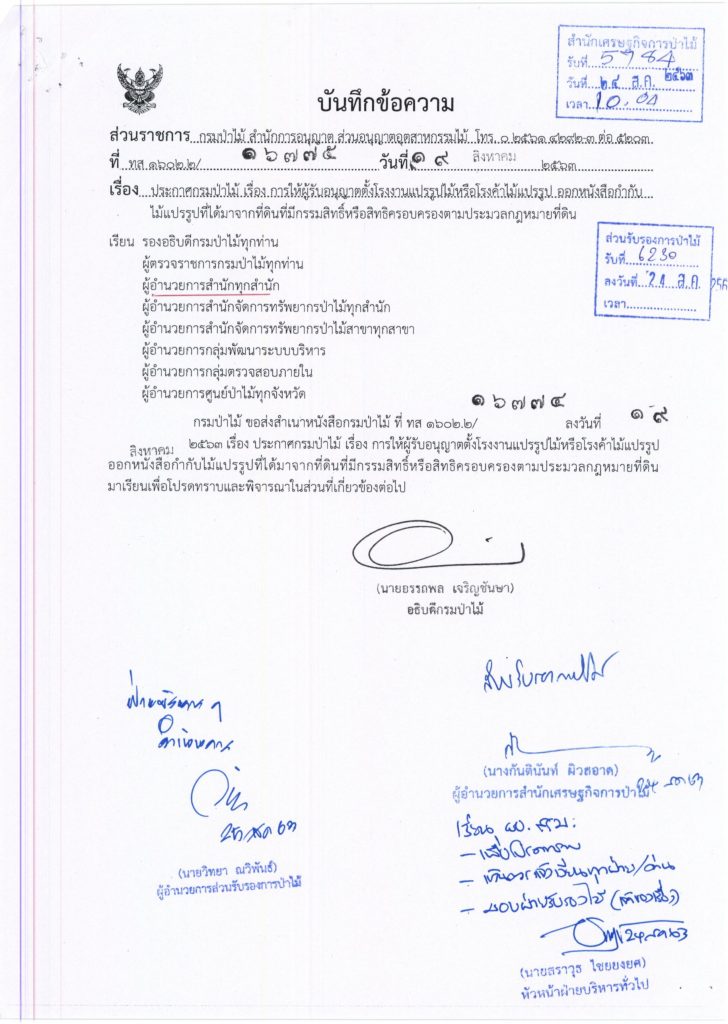 สำนักเศรษฐกิจการป่าไม้
รับที่ 5784
วันที่ ๒๔ ส.ค. ๒๕๖๓
เวลา 10.00
บันทึกข้อความ
ส่วนราชการ กรมป่าไม้ สำนักการอนุญาต ส่วนอนุญาตอุตสาหกรรมไม้ โทร. ๐ ๒๕๖๑ ๔๒๙๒-๓ ต่อ ๕๒๐๓
ที่ ทส ๑๖๐๒.๒/ ๑๖๗๗๕ วันที่ ๑๙ สิงหาคม ๒๕๖๓
เรื่อง ประกาศกรมป่าไม้ เรื่อง การให้ผู้รับอนุญาตตั้งโรงงานแปรรูปไม้หรือโรงค้าไม้แปรรูป ออกหนังสือกำกับ
ไม้แปรรูปที่ได้มาจากที่ดินที่มีกรรมสิทธิ์หรือสิทธิครอบครองตามประมวลกฎหมายที่ดิน
ส่วนรับรองการป่าไม้
รับที่ 6230
ลงวันที่ 24 ส.ค. 256
เวลา
เรียน รองอธิบดีกรมป่าไม้ทุกท่าน
ผู้ตรวจราชการกรมป่าไม้ทุกท่าน
ผู้อำนวยการสำนักทุกสำนัก
ผู้อำนวยการสำนักจัดการทรัพยากรป่าไม้ทุกสำนัก
ผู้อำนวยการสำนักจัดการทรัพยากรป่าไม้สาขาทุกสาขา
ผู้อำนวยการกลุ่มพัฒนาระบบบริหาร
ผู้อำนวยการกลุ่มตรวจสอบภายใน
ผู้อำนวยการศูนย์ป่าไม้ทุกจังหวัด
กรมป่าไม้ ขอส่งสำเนาหนังสือกรมป่าไม้ ที่ ทส ๑๖๐๒.๒/ ๑๖๗๗๔ ลงวันที่ ๑๙
สิงหาคม ๒๕๖๓ เรื่อง ประกาศกรมป่าไม้ เรื่อง การให้ผู้รับอนุญาตตั้งโรงงานแปรรูปไม้หรือโรงค้าไม้แปรรูป
ออกหนังสือกำกับไม้แปรรูปที่ได้มาจากที่ดินที่มีกรรมสิทธิ์หรือสิทธิครอบครองตามประมวลกฎหมายที่ดิน
มาเรียนเพื่อโปรดทราบและพิจารณาในส่วนที่เกี่ยวข้องต่อไป
(นายอรรถพล เจริญชันษา)
อธิบดีกรมป่าไม้
ดำเนินการ
(นายวิทยา ณวิพันธ์)
ผู้อำนวยการส่วนรับรองการป่าไม้
ส่วนรับรองการป่าไม้
(นางกันตินันท์ ผิวสอาด)
ผู้อำนวยการสำนักเศรษฐกิจการป่าไม้
เรียน ผอ.
- เพื่อโปรดทราบ
(นายสราวุธ ไชยยงยศ)
หัวหน้าฝ่ายบริหารทั่วไป